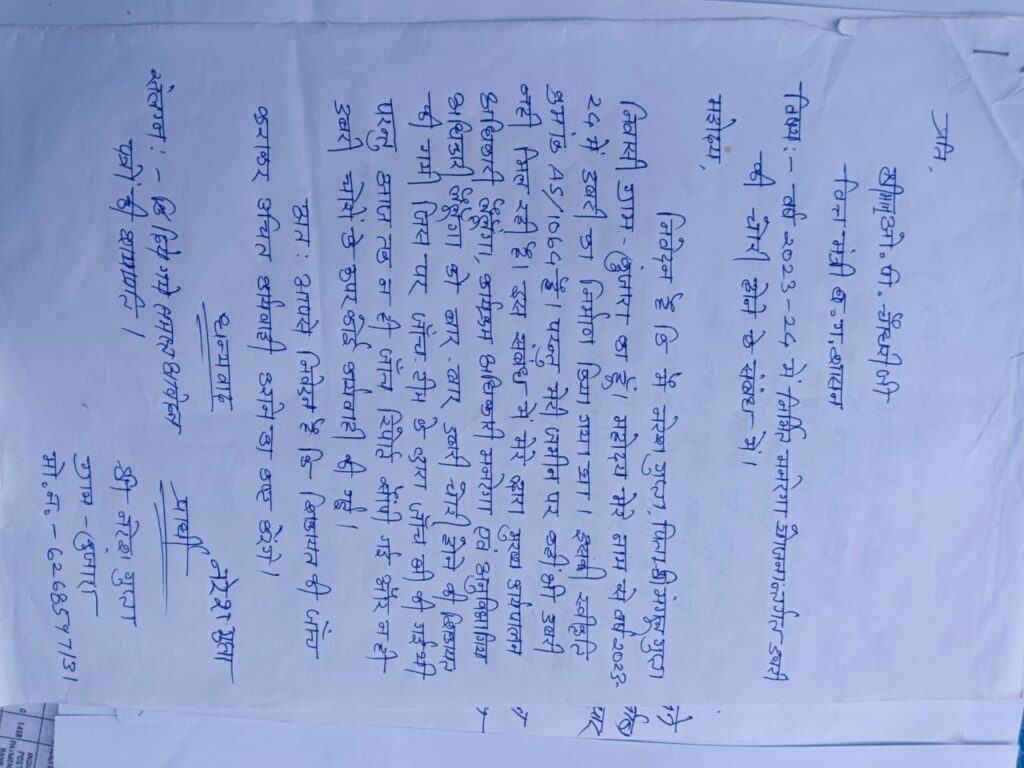 प्रति,
श्रीमान् ओ. पी. चौधरी जी
वित्त मंत्री छ.ग. शासन
विषय:- वर्ष 2023-24 में निर्मित मनरेगा योजनान्तर्गत डबरी
की चोरी होने के संबंध में।
महोदय,
निवेदन है कि मैं नरेश गुप्ता, पिता श्री मंगलु गुप्ता
निवासी ग्राम - कुंजारा का हूँ। महोदय मेरे नाम से वर्ष 2023-
24 में डबरी का निर्माण किया गया था। इसकी स्वीकृति
क्रमांक AS/1064 है। परन्तु मेरी जमीन पर कहीं भी डबरी
नहीं मिल रही है। इस संबंध में मेरे द्वारा मुख्य कार्यपालन
अधिकारी लैलूंगा, कार्यक्रम अधिकारी मनरेगा एवं अनुविभागीय
अधिकारी लैलूंगा को बार-बार डबरी चोरी होने की शिकायत
की गयी जिस पर जाँच टीम के द्वारा जाँच की गई थी
परन्तु आज तक ना ही जाँच रिपोर्ट सौंपी गई और न ही
डबरी चोरों के ऊपर कोई कार्यवाही की गई।
अतः आपसे निवेदन है कि शिकायत की जाँच
कराकर उचित कार्यवाही करने का कष्ट करेंगे।
धन्यवाद
संलग्न:- कि दिये गये समस्त आवेदन
पत्रों की छायाप्रति।
प्रार्थी
नरेश गुप्ता
श्री नरेश गुप्ता
ग्राम - कुंजारा
मो.नं.- 6268547731